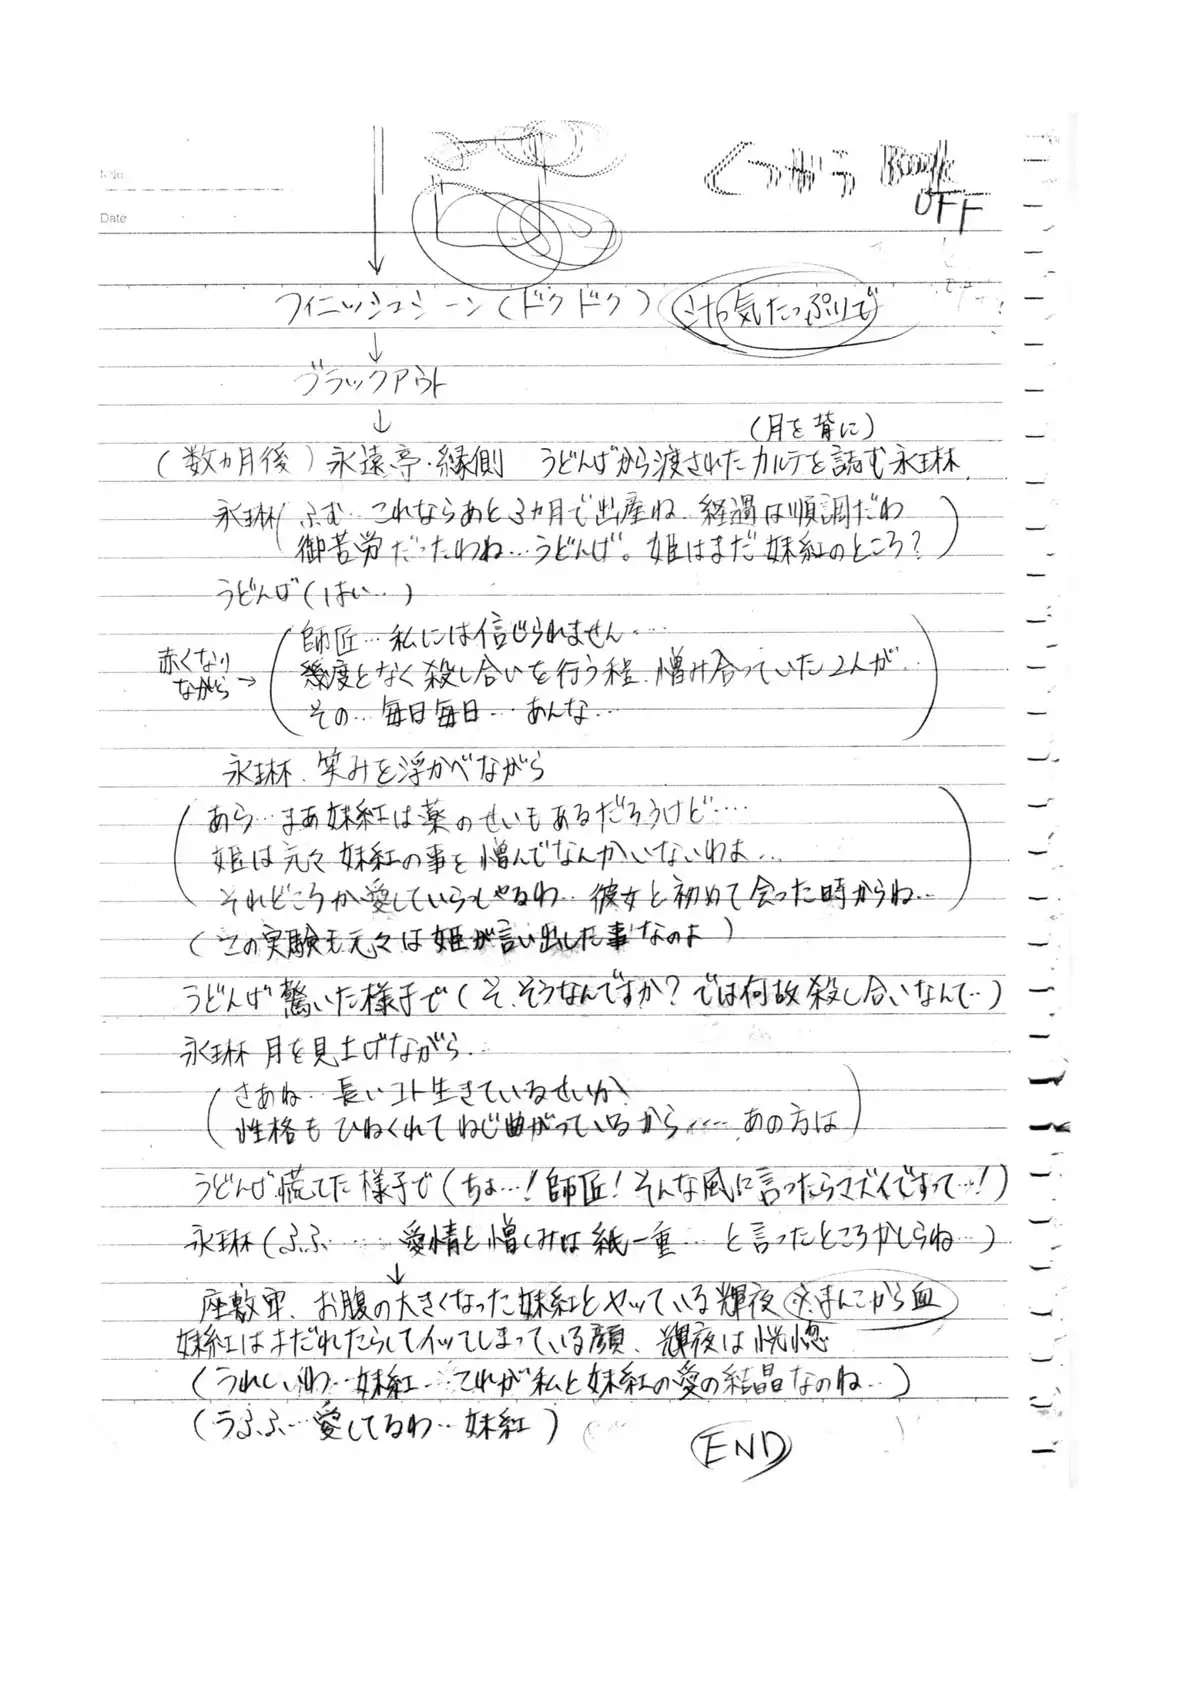 Date
OFF
フィニッシュシーン(ドクドク) 汁っ気たっぷりで
ブラックアウト
(月を背に)
(数ヵ月後)永遠亭・縁側 うどんげから渡されたカルテを読む永琳
永琳(ふむ…これならあと3ヵ月で出産ね、経過は順調だわ
御苦労だったわね…うどんげ。姫はまだ妹紅のところ?)
うどんげ(はい…)
赤くなり
ながら→
(師匠…私には信じられません…
幾度となく殺し合いを行う程、憎み合っていた2人が…
その…毎日毎日…あんな…)
永琳、笑みを浮かべながら
(あら…まあ妹紅は薬のせいもあるだろうけど…
姫は元々妹紅の事を憎んでなんかいないわよ…
それどころか愛していらっしゃるわ…彼女と初めて会った時からね…)
(この実験も元々は姫が言い出した事なのよ)
うどんげ驚いた様子で(そ、そうなんですか?では何故殺し合いなんて…)
永琳 月を見上げながら…
(さあね…長いコト生きているせいか、
性格もひねくれてねじ曲がっているから……あの方は)
うどんげ慌てた様子で(ちょ…!師匠!そんな風に言ったらマズイですって…!)
永琳(ふふ……愛情と憎しみは紙一重…と言ったところかしらね…)
座敷牢、お腹の大きくなった妹紅とヤッている輝夜 ※まんこから血
妹紅はまだれたらしてイッてしまっている顔、輝夜は恍惚
(うれしいわ…妹紅…これが私と妹紅の愛の結晶なのね…)
(うふふ…愛してるわ…妹紅)
END